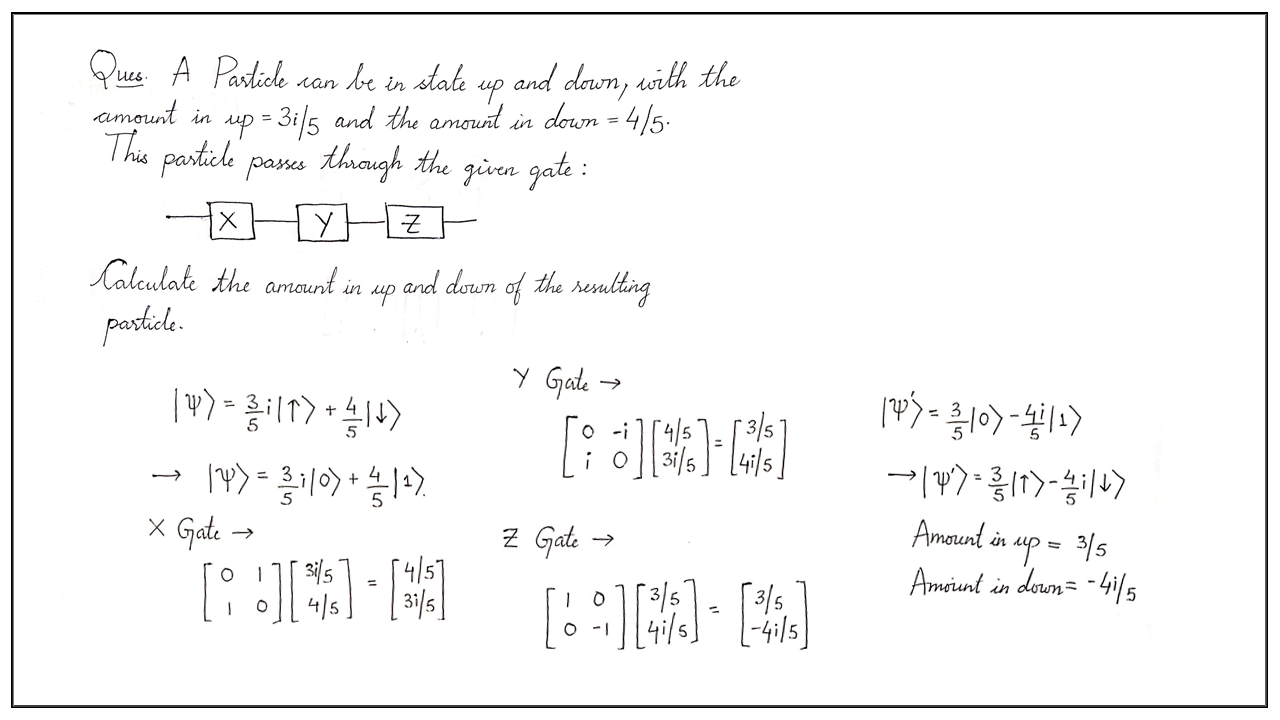 Ques. A Particle can be in state up and down, with the
amount in up = 3i/5 and the amount in down = 4/5.
This particle passes through the given gate :
X Y Z
Calculate the amount in up and down of the resulting
particle.
|Ψ⟩ = 3/5 i|↑⟩ + 4/5 |↓⟩
→ |Ψ⟩ = 3/5 i|0⟩ + 4/5 |1⟩.
X Gate →
[0 1; 1 0] [3i/5; 4/5] = [4/5; 3i/5]
Y Gate →
[0 -i; i 0] [4/5; 3i/5] = [3/5; 4i/5]
Z Gate →
[1 0; 0 -1] [3/5; 4i/5] = [3/5; -4i/5]
|Ψ'⟩ = 3/5 |0⟩ - 4i/5 |1⟩
→ |Ψ'⟩ = 3/5 |↑⟩ - 4/5 i|↓⟩
Amount in up = 3/5
Amount in down = -4i/5